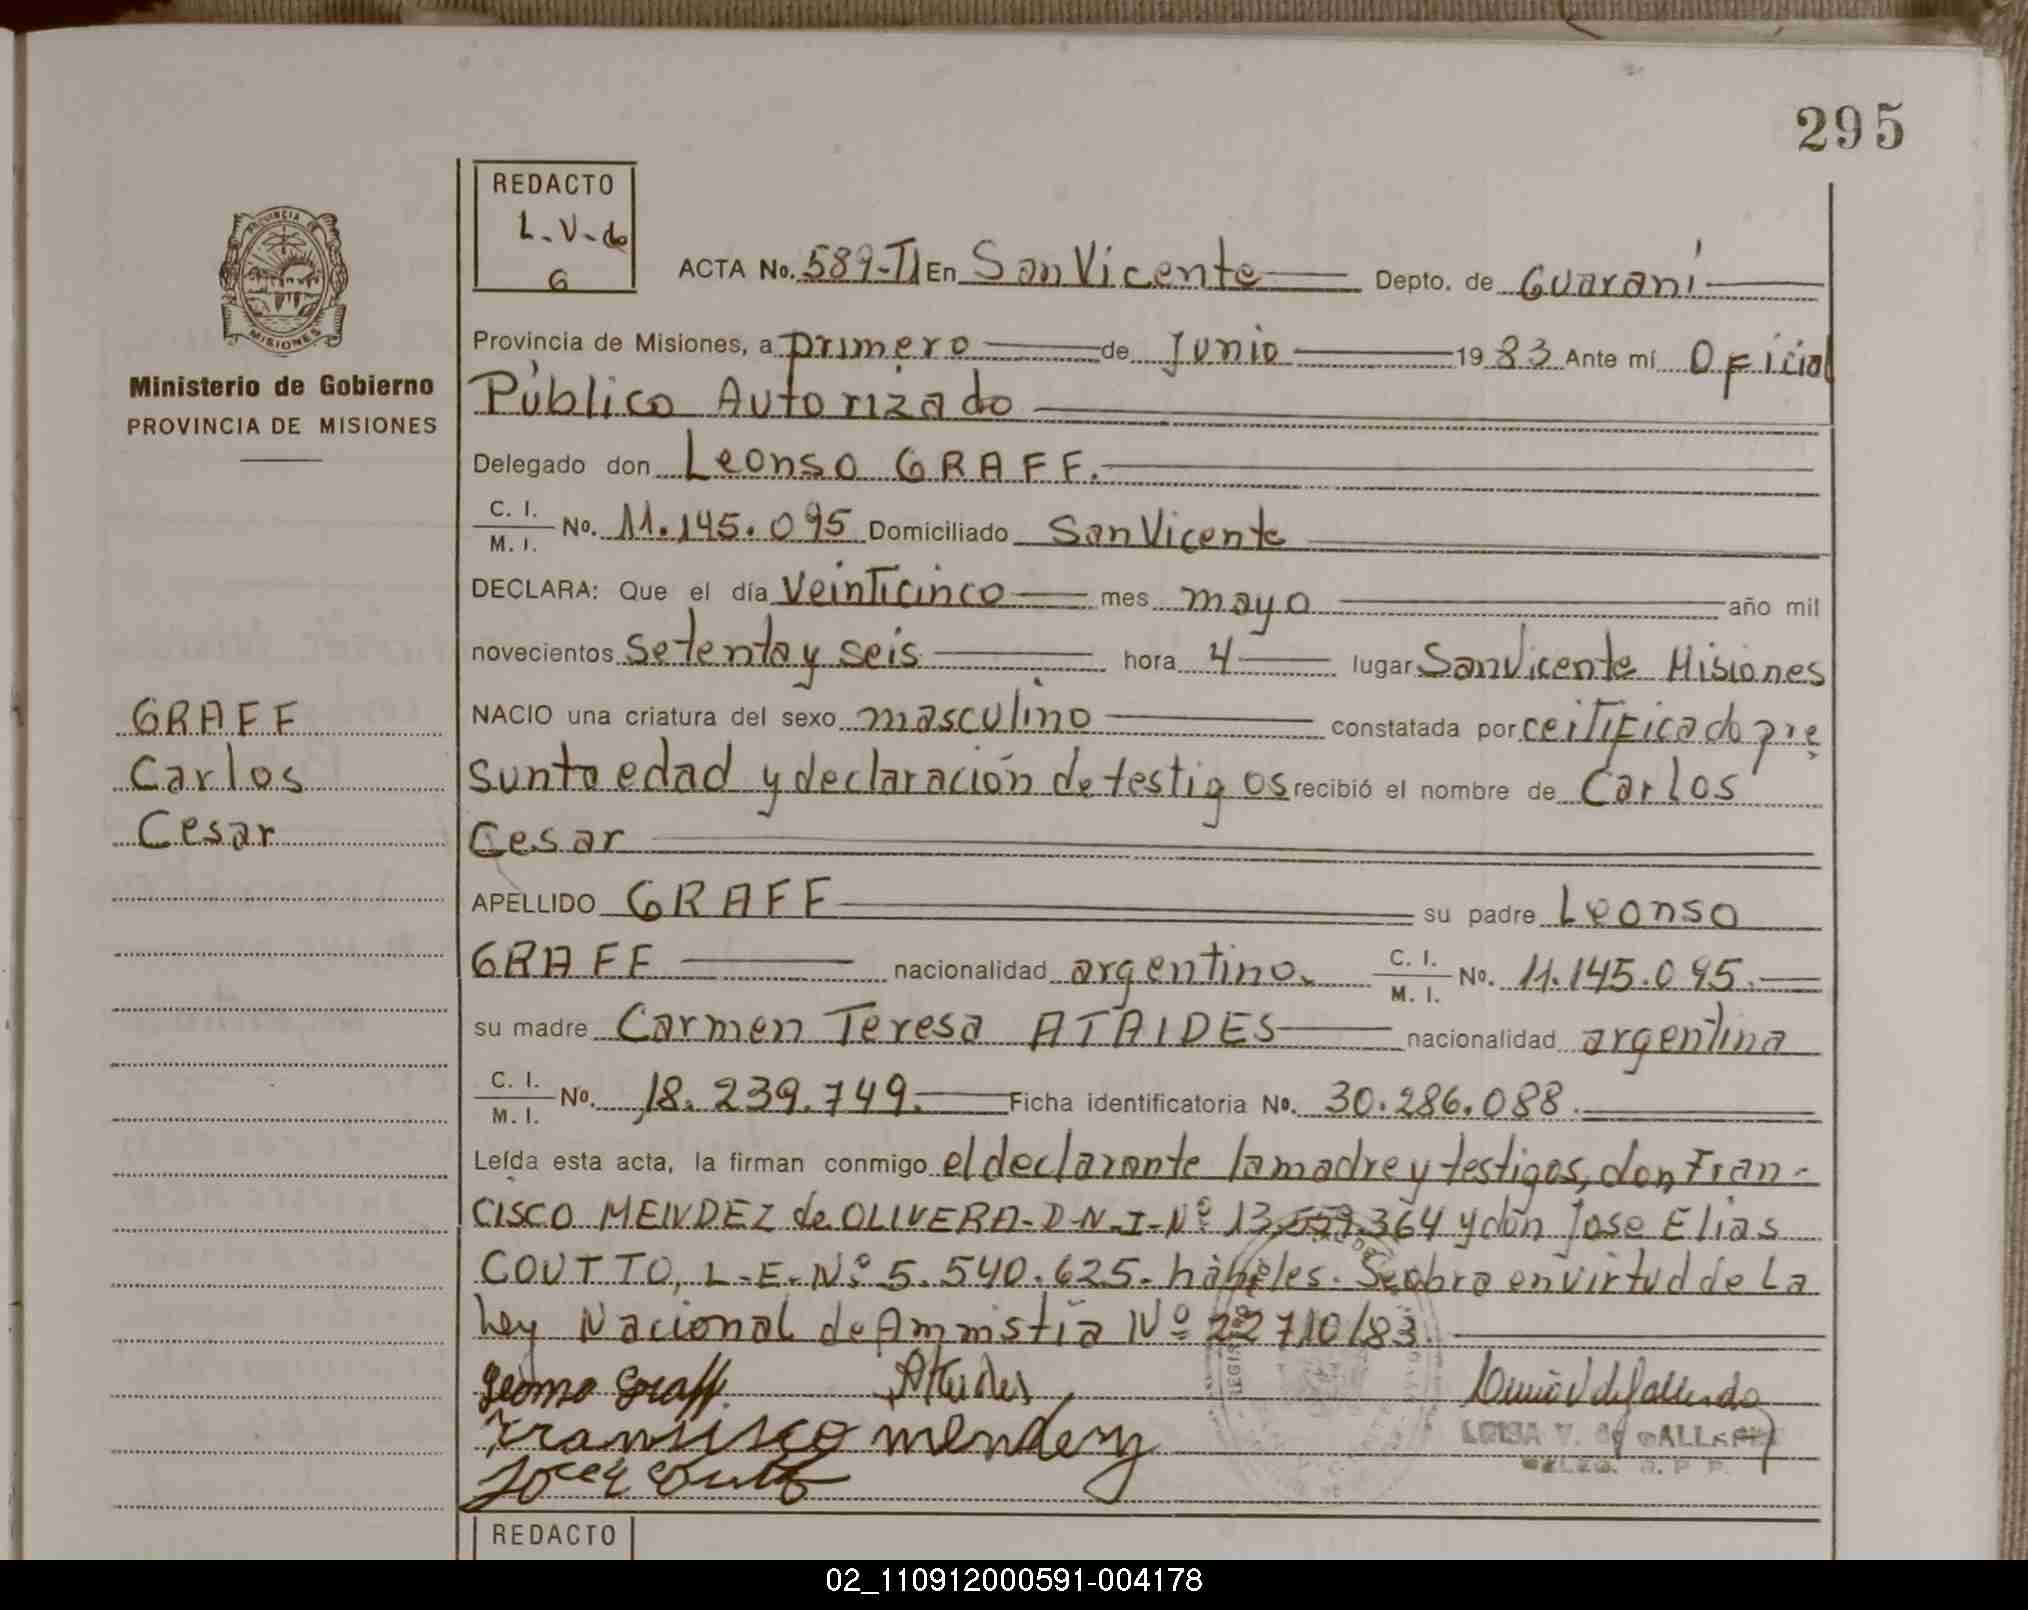 295
REDACTO
L-V-de
G
PROVINCIA DE
MISIONES
Ministerio de Gobierno
PROVINCIA DE MISIONES
GRAFF
Carlos
Cesar
ACTA No. 589-TI En San Vicente Depto. de Guaraní
Provincia de Misiones, a primero de Junio 1983 Ante mí Oficial
Público Autorizado
Delegado don Leonso GRAFF.
C. I. / M. I. No. 11.145.095 Domiciliado San Vicente
DECLARA: Que el día Veinticinco mes mayo año mil
novecientos setenta y seis hora 4 lugar San Vicente Misiones
NACIO una criatura del sexo masculino constatada por certificado pre
sunta edad y declaración de testigos recibió el nombre de Carlos
Cesar
APELLIDO GRAFF su padre Leonso
GRAFF nacionalidad argentino. C. I. / M. I. No. 11.145.095.
su madre Carmen Teresa ATAIDES nacionalidad argentina
C. I. / M. I. No. 18.239.749. Ficha identificatoria No. 30.286.088.
Leída esta acta, la firman conmigo el declarante la madre y testigos, don Fran-
CISCO MENDEZ de OLIVERA-D-N-I-Nº 13.559.364 y don Jose Elias
COUTTO, L-E-Nº 5.540.625- hábiles. Se obra en virtud de La
Ley Nacional de Amnistía Nº 22710/83.
Leonso Graff. Ataides
Francisco Mendez
LUISA V. de GALLARDO
REDACTO
02_110912000591-004178